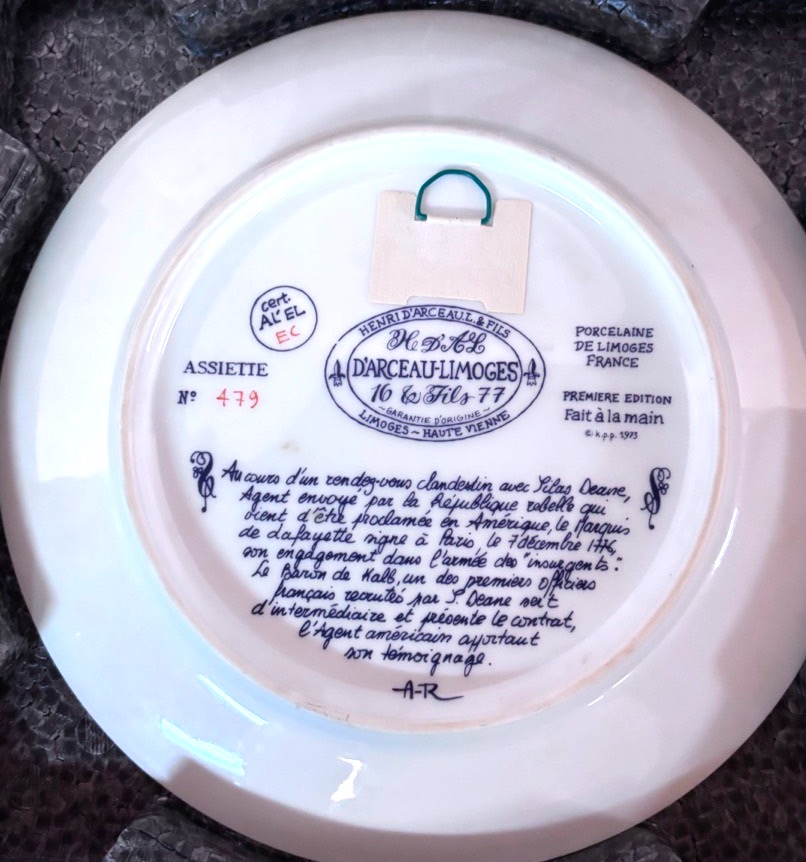 cert.
AL' EL
EC
ASSIETTE
N° 479
HENRI D'ARCEAU.L. & FILS
H D'A L
D'ARCEAU-LIMOGES
16 & Fils 77
~GARANTIE D'ORIGINE~
LIMOGES ~ HAUTE VIENNE
PORCELAINE
DE LIMOGES
FRANCE
PREMIERE EDITION
Fait à la main
© k.p.p. 1973
Au cours d'un rendez-vous clandestin avec Silas Deane,
Agent envoyé par la République rebelle qui
vient d'être proclamée en Amérique, le Marquis
de Lafayette signe à Paris, le 7 décembre 1776,
son engagement dans l'armée des "insurgents":
Le Baron de Kalb, un des premiers officiers
français recrutés par S. Deane sert
d'intermédiaire et présente le contrat,
l'Agent américain apportant
son témoignage.
A-R